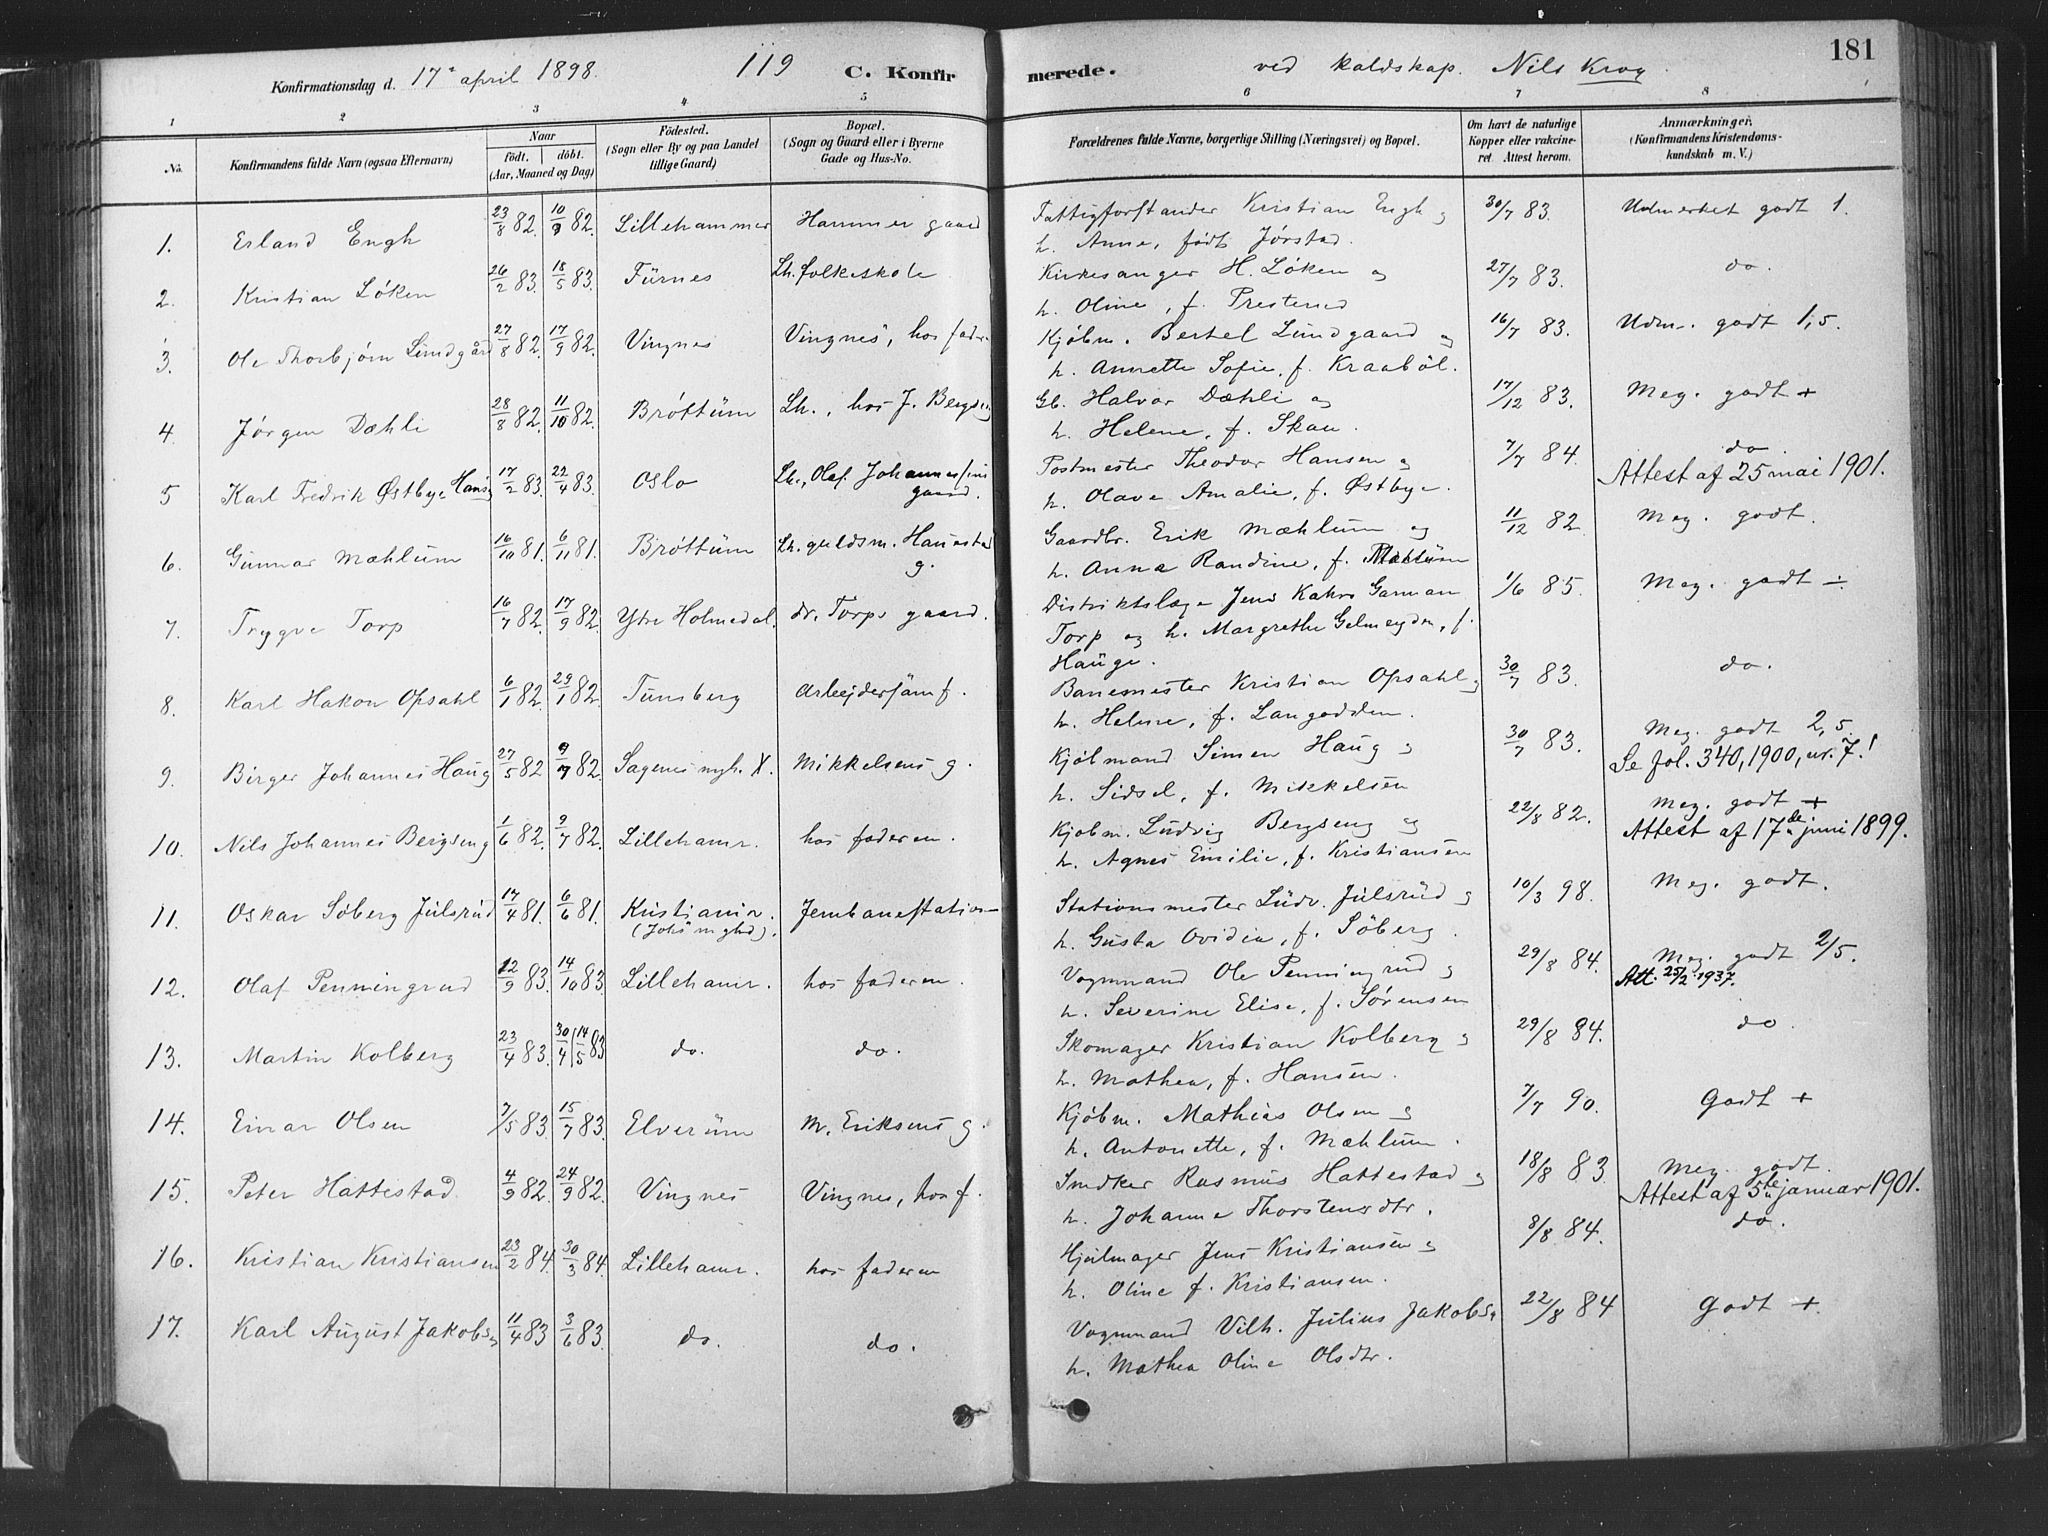 181
Konfirmationsdag d. 17de april 1898. 119 C. Konfirmerede. ved kaldskap. Nils Krog.
1 2 3 4 5 6 7 8
No. Konfirmandens fulde Navn (ogsaa Efternavn) Naar födt. döbt. (Aar, Maaned og Dag) Födested. (Sogn eller By og paa Landet tillige Gaard) Bopæl. (Sogn og Gaard eller i Byerne Gade og Hus-No. Forældrenes fulde Navne, borgerlige Stilling (Næringsvei) og Bopæl. Om havt de naturlige Kopper eller vakcineret. Attest herom. Anmærkninger. (Konfirmandens Kristendomskundskab m. V.)
1. Erland Engh 23/8 82. 10/9 82. Lillehammer Hammer gaard Fattigforstander Kristian Engh og 30/7 83. Udmerket godt 1.
h. Anne, født Jørstad.
2. Kristian Løken 26/2 83. 18/5 83. Fürnes Lh. folkeskole Kirkesanger H. Løken og 27/7 83. do.
h. Oline, f. Presterud
3. Ole Thorbjørn Lundgård 27/8 82. 17/9 82. Vingnes Vingnes, hos fader. Kjøbm. Bertel Lundgaard og 16/7 83. Udm. godt 1,5.
h. Annette Sofie, f. Kraabøl.
4. Jørgen Dæhli 28/8 82. 11/10 82. Brøttüm Lh., hos J. Bergseng Gb. Halvor Dæhli og 17/12 83. Meg. godt +
h. Helene, f. Skau.
5 Karl Fredrik Østbye Hansen 17/2 83. 22/4 83. Oslo Lh., Olaf Johannessens gaard. Postmester Theodor Hansen og 7/7 84. do.
h. Olave Amalie, f. Østbye. Attest af 25 mai 1901.
6. Gunnar Mæhlum 16/10 81. 6/11 81. Brøttüm Lh. guldsm. Hauestad g. Gaardbr. Erik Mæhlum og 11/12 82. Meg. godt.
h. Anna Randine, f. Mæhlum
7. Trygve Torp 16/7 82. 17/9 82. Ytre Holmedal. dr. Torps gaard. Distriktslæge Jens Kahrs Garman 1/6 85. Meg. godt ÷
Torp og h. Margrethe Gelmeyden, f.
Hauge.
8. Karl Hakon Opsahl 6/1 82. 29/1 82. Tunsberg Arbejdersamf. Banemester Kristian Opsahl og 30/7 83. do.
h. Helene, f. Langodden.
9. Birger Johannes Haug 27/5 82. 9/7 82. Sagenes mgh. X. Mikkelsens g. Kjøbmand Simen Haug og 30/7 83. Meg. godt 2,5.
h. Sidsel, f. Mikkelsen Se fol. 340, 1900, nr. 7!
10. Nils Johannes Bergseng 1/6 82. 9/7 82. Lillehamr. hos faderen. Kjøbm. Ludvig Bergseng og 22/8 82. Meg. godt +
h. Agnes Emilie, f. Kristiansen Attest af 17de juni 1899.
11. Oskar Søberg Julsrud 17/4 81. 6/6 81. Kristiania. (Johs mghd). Jernbanestation Stationsmester Ludv. Julsrud og 10/3 98. Meg. godt.
h. Gusta Ovidia, f. Søberg.
12. Olaf Penningrud 12/9 83. 14/10 83. Lillehamr. hos faderen. Vognmand Ole Penningrud og 29/8 84. Meg. godt 2/5.
h. Severine Elise, f. Sørensen Att. 25/2 1937.
13. Martin Kolberg 23/4 83. 30/4 14/5 83 do. do. Skomager Kristian Kolberg og 29/8 84. do.
h. Mathea, f. Hansen.
14. Einar Olsen 7/5 83. 15/7 83. Elverüm M. Eriksens g. Kjøbm. Mathias Olsen og 7/7 90. Godt +
h. Antonette, f. Mæhlum.
15. Peter Hattestad 4/9 82. 24/9 82. Vingnes Vingnes, hos f. Snedker Rasmus Hattestad og 18/8 83. Meg. godt.
h. Johanne Thorstensdtr. Attest af 5te januar 1901.
16. Kristian Kristiansen 23/2 84. 30/3 84. Lillehamr. hos faderen Hjulmager Jens Kristiansen og 8/8 84. do.
h. Oline f. Kristiansen.
17. Karl August Jakobsen 11/4 83 3/6 83. do. do. Vognmand Vilh. Julius Jakobsen 22/8 84 Godt +
h. Mathea Oline Olsdtr.